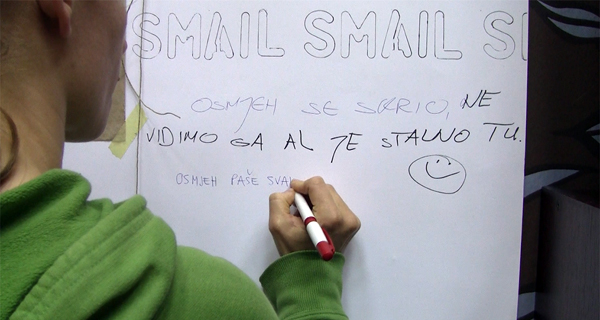 SMAIL SMAIL S
OSMJEH SE SKRIO, NE
VIDIMO GA AL JE STALNO TU.
OSMJEH PAŠE SVA